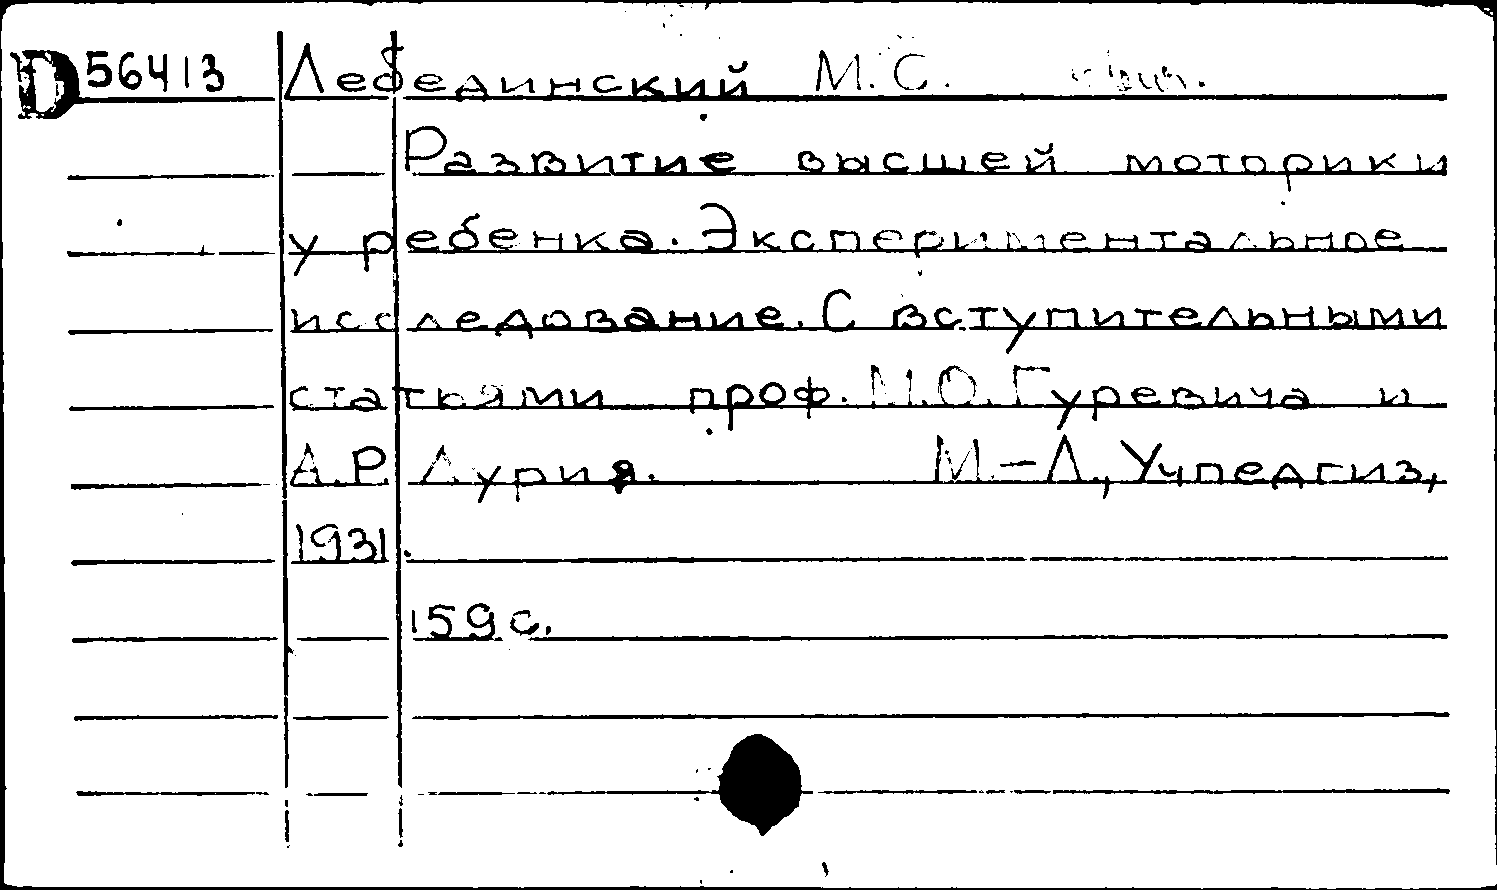 D 56413 Лебединский М.С.
Развитие высшей моторики
у ребенка. Экспериментальное
исследование. С вступительными
статьями проф. М.О.Гуревича и
А.Р. Лурия. М.-Л., Учпедгиз,
1931.
159 с.